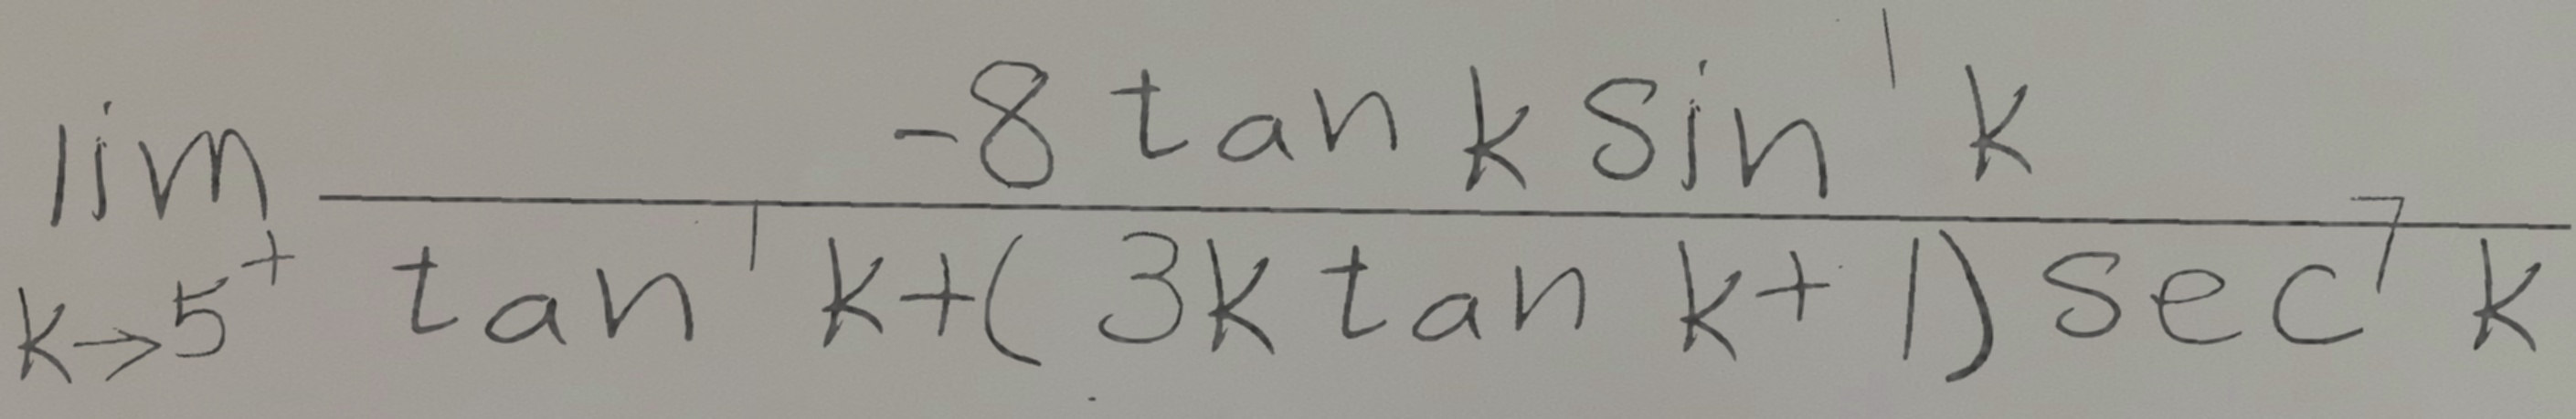 \lim_{k \to 5^{+}} \frac{-8 \tan k \sin^{1} k}{\tan^{1} k + (3k \tan k + 1) \sec^{7} k}